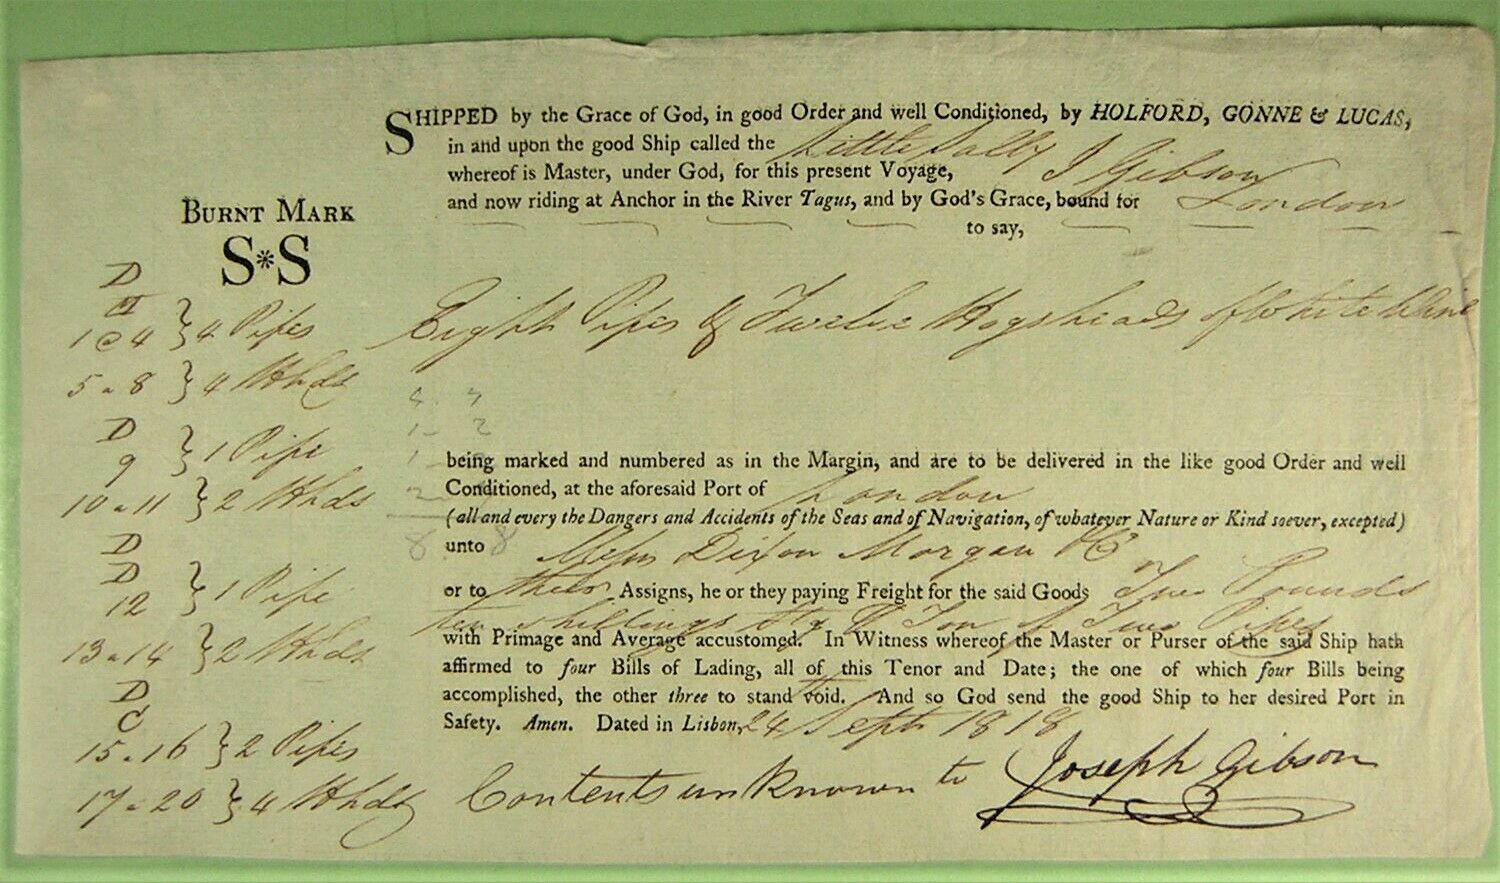 SHIPPED by the Grace of God, in good Order and well Conditioned, by HOLFORD, GONNE & LUCAS,
in and upon the good Ship called the Little Sally
whereof is Master, under God, for this present Voyage, J Gibson
and now riding at Anchor in the River Tagus, and by God's Grace, bound for London
to say,
BURNT MARK
S*S
D
1@4 } 4 Pipes
5 a 8 } 4 Hhds
D
9 } 1 Pipe
10 a 11 } 2 Hhds
D
D
12 } 1 Pipe
13 a 14 } 2 Hhds
D
C
15 a 16 } 2 Pipes
17 a 20 } 4 Hhds
Eight Pipes & Twelve Hogsheads of White Wine
being marked and numbered as in the Margin, and are to be delivered in the like good Order and well
Conditioned, at the aforesaid Port of London
(all and every the Dangers and Accidents of the Seas and of Navigation, of whatever Nature or Kind soever, excepted)
8 unto 8 Messrs Dixon Morgan & Co
or to their Assigns, he or they paying Freight for the said Goods Two Pounds
ten shillings Stg Ton of Two Pipes
with Primage and Average accustomed. In Witness whereof the Master or Purser of the said Ship hath
affirmed to four Bills of Lading, all of this Tenor and Date; the one of which four Bills being
accomplished, the other three to stand void. And so God send the good Ship to her desired Port in
Safety. Amen. Dated in Lisbon, 24 Septr 1818
Contents unknown to Joseph Gibson